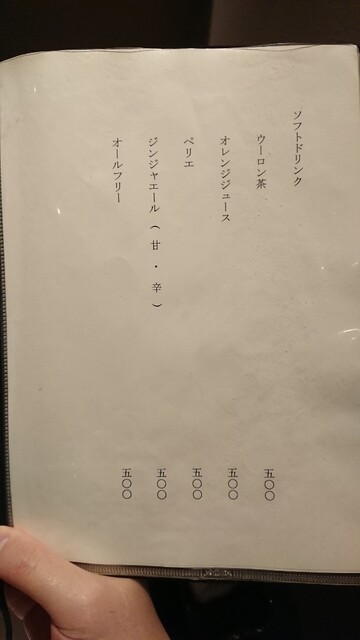 ソフトドリンク
ウーロン茶 五〇〇
オレンジジュース 五〇〇
ペリエ 五〇〇
ジンジャエール（甘・辛） 五〇〇
オールフリー 五〇〇